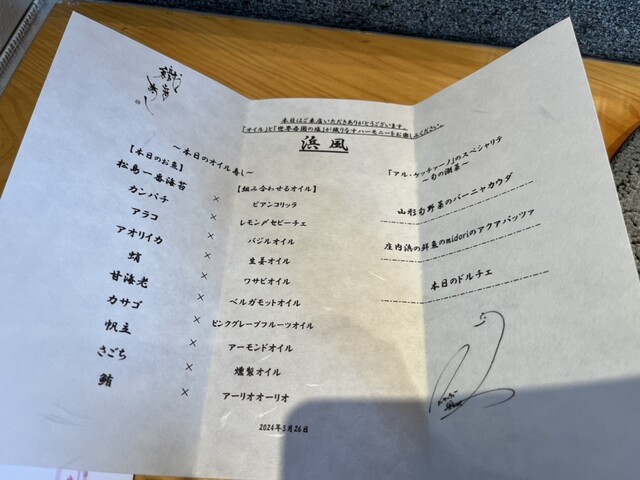 本日はご来店いただきありがとうございます。
「オイル」と「世界各国の塩」が織りなすハーモニーをお楽しみください
浜風
～本日のオイル寿し～
【本日のお魚】 【組み合わせるオイル】
松島一番海苔 × ビアンコリッラ
カンパチ × レモン〆セビーチェ
アラコ × バジルオイル
アオリイカ × 生姜オイル
蛸 × ワサビオイル
甘海老 × ベルガモットオイル
カサゴ × ピンクグレープフルーツオイル
帆立 × アーモンドオイル
さごち × 燻製オイル
鮪 × アーリオオーリオ
2024年3月26日
「アル・ケッチァーノ」のスペシャリテ
～旬の潮菜～
山形旬野菜のバーニャカウダ
庄内浜の鮮魚のmidoriのアクアパッツァ
本日のドルチェ